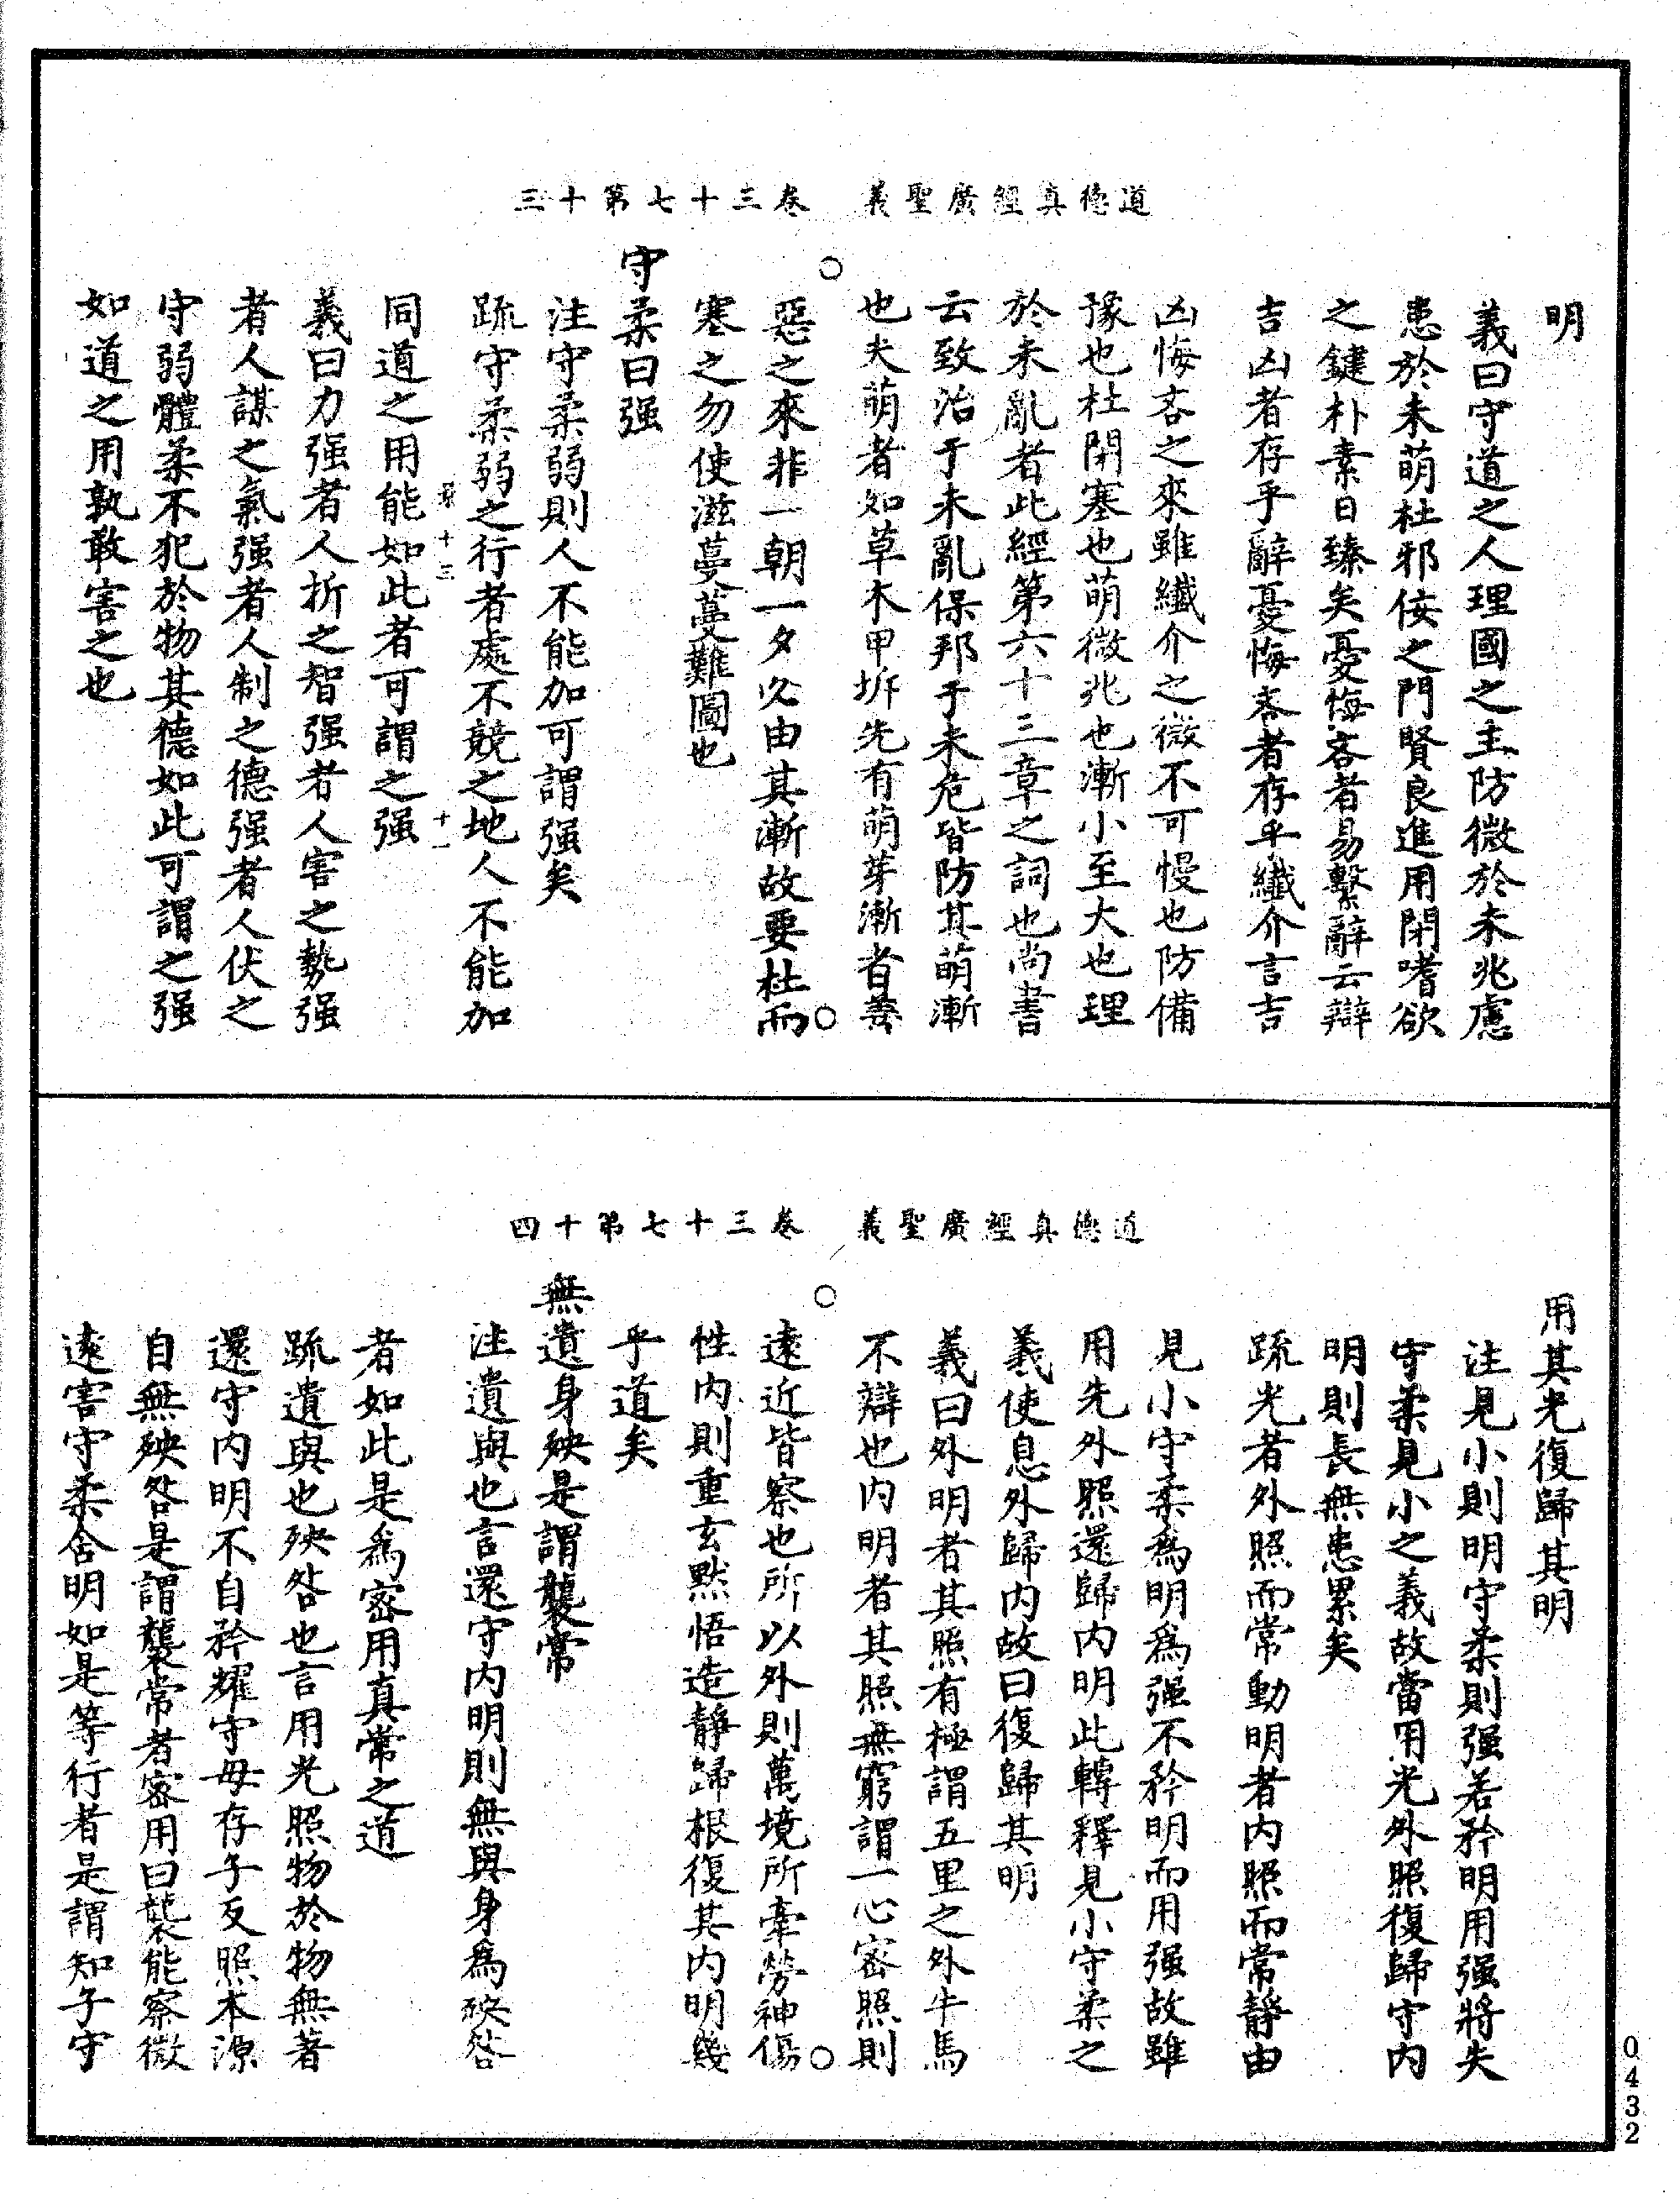 道德真經廣聖義　卷三十七第十三
明
義曰守道之人理國之主防微於未兆慮
患於未萌杜邪佞之門賢良進用閉嗜欲
之鍵朴素日臻矣憂悔吝者易繫辭云辯
吉凶者存乎辭憂悔吝者存乎纖介言吉
凶悔吝之來雖纖介之微不可慢也防備
豫也杜閉塞也萌微兆也漸小至大也理
於未亂者此經第六十三章之詞也尚書
云致治于未亂保邦于未危皆防其萌漸
也夫萌者如草木甲坼先有萌芽漸者善
惡之來非一朝一夕必由其漸故要杜而
塞之勿使滋蔓蔓難圖也
守柔曰强
注守柔弱則人不能加可謂强矣
疏守柔弱之行者處不競之地人不能加
十三　十一
同道之用能如此者可謂之强
義曰力强者人折之智强者人害之勢强
者人謀之氣强者人制之德强者人伏之
守弱體柔不犯於物其德如此可謂之强
如道之用孰敢害之也
道德真經廣聖義　卷三十七第十四
用其光復歸其明
注見小則明守柔則强若矜明用强將失
守柔見小之義故當用光外照復歸守内
明則長無患累矣
疏光者外照而常動明者内照而常靜由
見小守柔爲明爲强不矜明而用强故雖
用先外照還歸内明此轉釋見小守柔之
義使息外歸内故曰復歸其明
義曰外明者其照有極謂五里之外牛馬
不辯也内明者其照無窮謂一心密照則
遠近皆察也所以外則萬境所牽勞神傷
性内則重玄默悟造靜歸根復其内明幾
乎道矣
無遺身殃是謂襲常
注遺與也言還守内明則無與身爲殃咎
者如此是爲密用真常之道
疏遺與也殃咎也言用光照物於物無著
還守内明不自矜耀守母存子反照本源
自無殃咎是謂襲常者密用曰襲能察微
遠害守柔含明如是等行者是謂知子守
0432